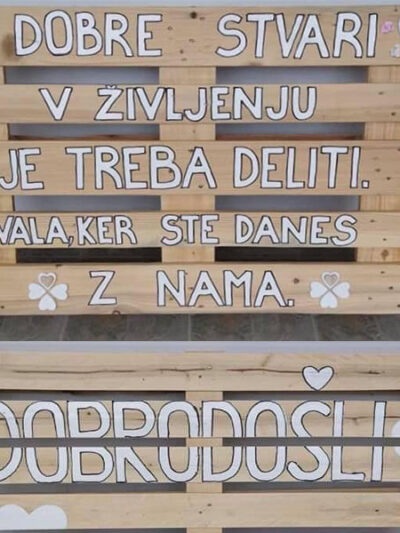 DOBRE STVARI
V ŽIVLJENJU
JE TREBA DELITI.
VALA, KER STE DANES
Z NAMA.
DOBRODOŠLI